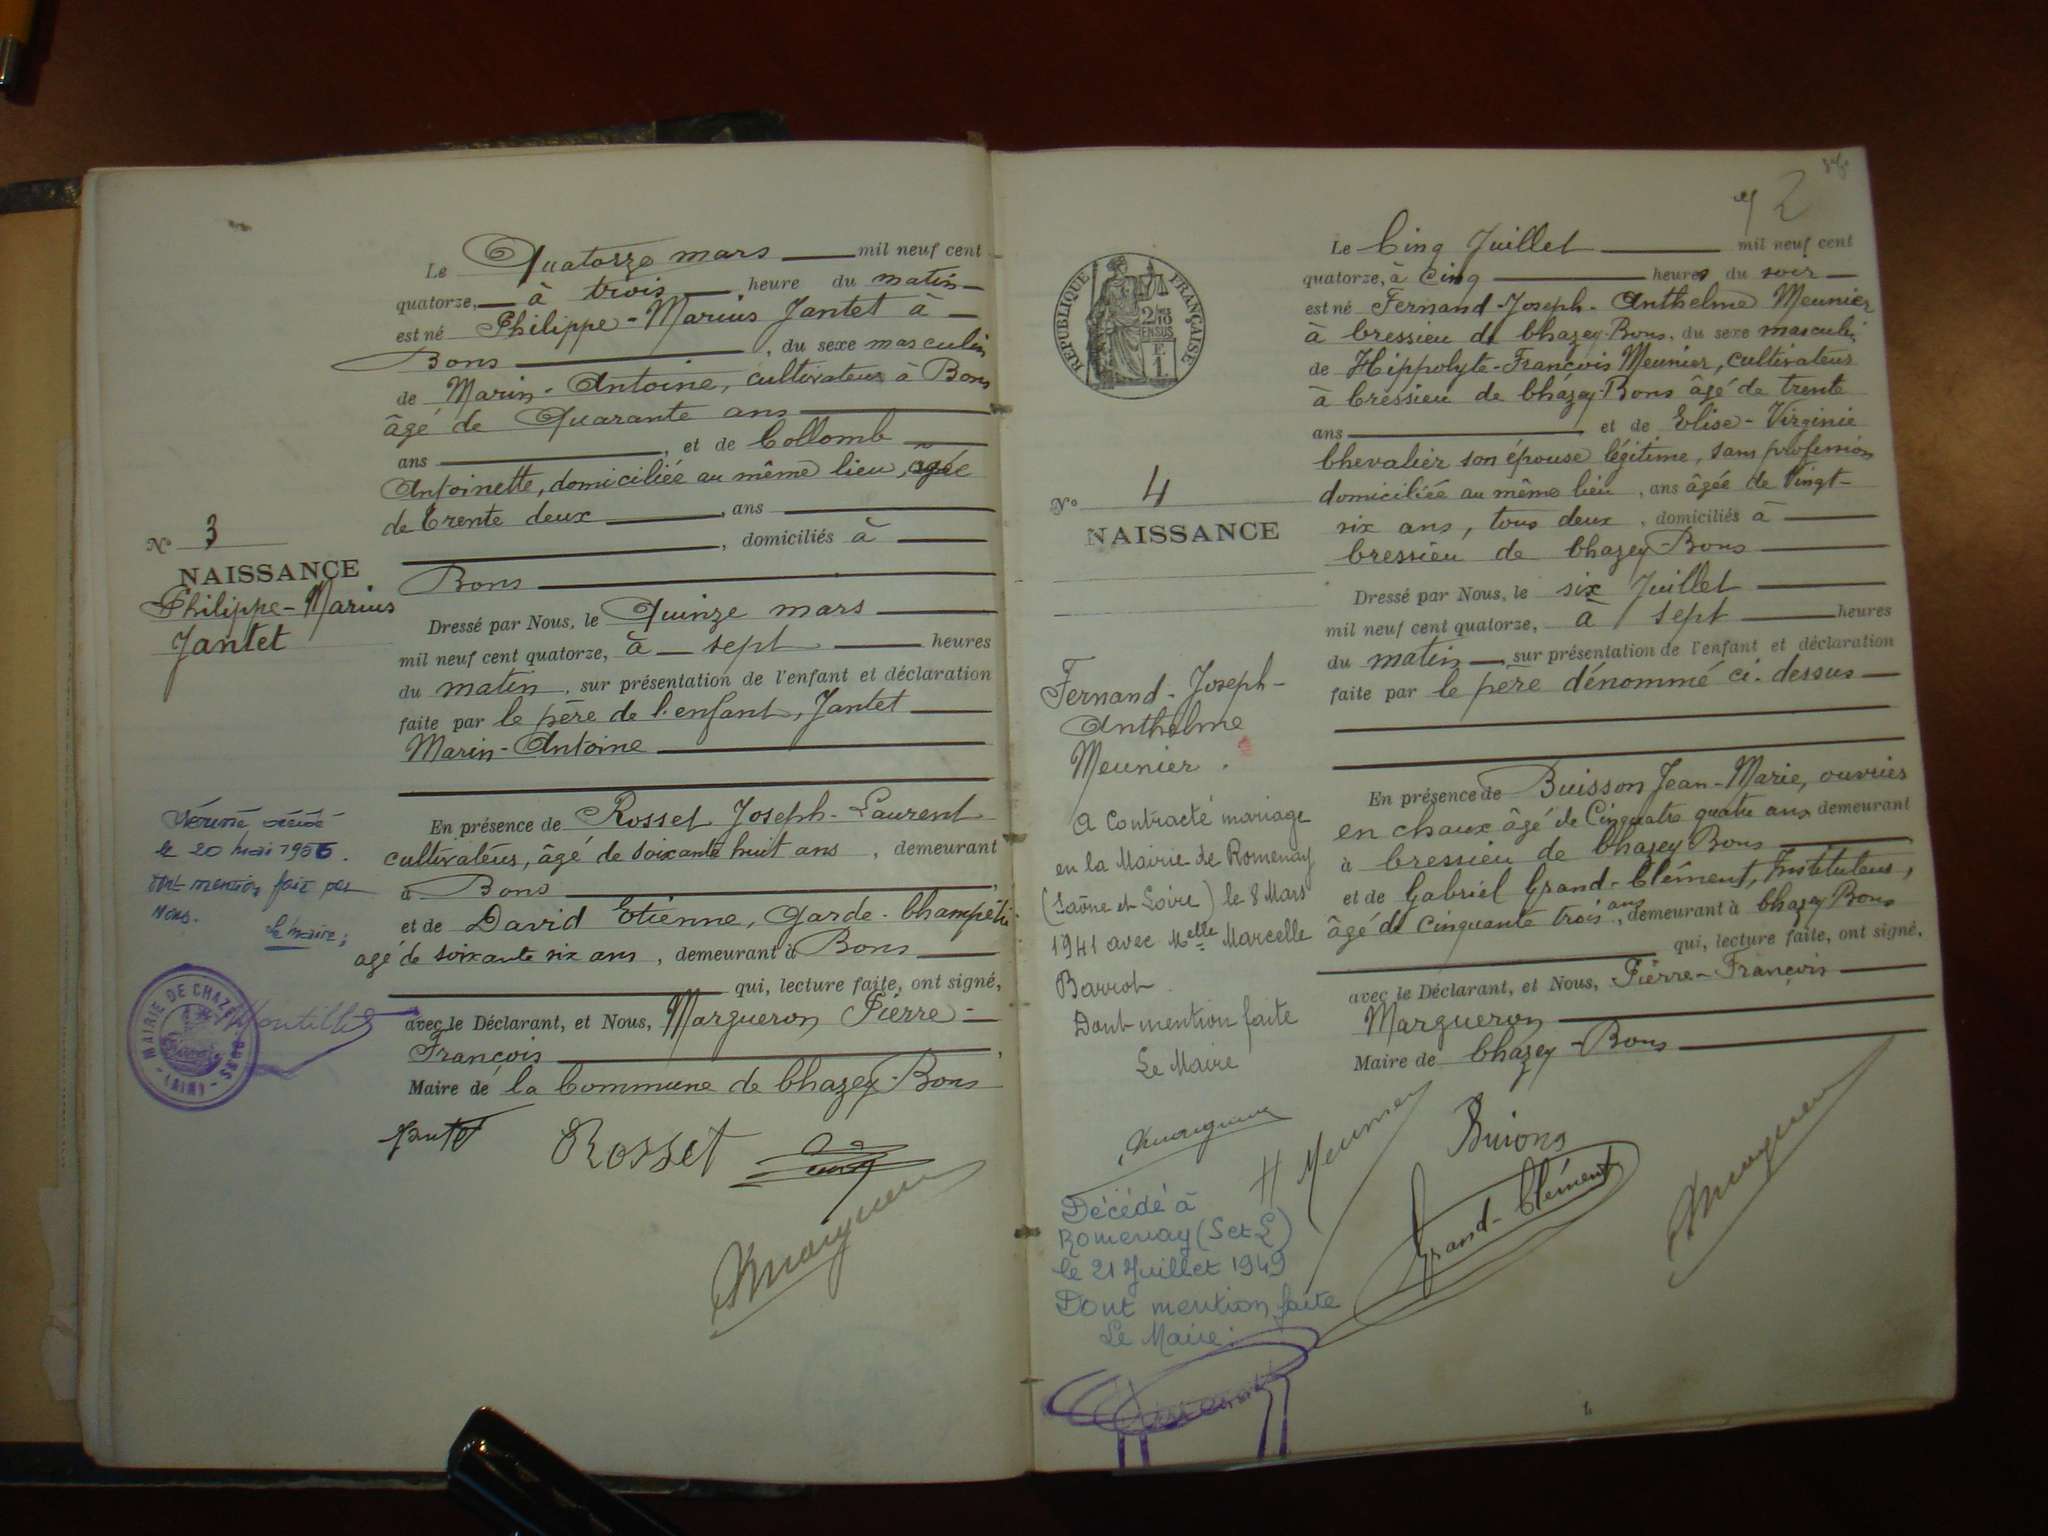 Le Quatorze mars mil neuf cent
quatorze, à trois heure du matin
est né Philippe-Marius Jantet à
Bons, du sexe masculin
de Marin-Antoine, cultivateur à Bons
âgé de Quarante ans
ans, et de Collomb
Antoinette, domiciliée au même lieu, agée
de trente deux, ans
, domiciliés à
Bons
Dressé par Nous, le Quinze mars
mil neuf cent quatorze, à sept heures
du matin, sur présentation de l'enfant et déclaration
faite par le père de l'enfant, Jantet
Marin-Antoine
En présence de Rosset Joseph-Laurent
cultivateur, âgé de soixante huit ans, demeurant
à Bons,
et de David Etienne, Garde-Champêtre
agé de soixante six ans, demeurant à Bons
qui, lecture faite, ont signé,
avec le Déclarant, et Nous, Margueron Pierre-
François,
Maire de la Commune de Chazey-Bons
Rosset
Nº 3
NAISSANCE
Philippe-Marius
Jantet
le 20 mai 1956.
dont mention fait par
Nous.
Le maire;
MAIRIE DE CHAZEY-BONS
(AIN)
72
Le Cinq Juillet mil neuf cent
quatorze, à cinq heures du soir
est né Fernand-Joseph-Anthelme Meunier
à Cressieu de Chazey-Bons, du sexe masculin
de Hippolyte-François Meunier, cultivateur
à Cressieu de Chazey-Bons âgé de trente
ans et de Elise-Virginie
Chevalier son épouse légitime, sans profession
domiciliée au même lieu, ans âgée de Vingt-
six ans, tous deux, domiciliés à
Cressieu de Chazey-Bons
Dressé par Nous, le six Juillet
mil neuf cent quatorze, à sept heures
du matin, sur présentation de l'enfant et déclaration
faite par le père dénommé ci-dessus
En présence de Buisson Jean-Marie, ouvrier
en chaux âgé de Cinquante quatre ans demeurant
à Cressieu de Chazey Bons
et de Gabriel Grand-Clément, Instituteur,
âgé de cinquante trois ans, demeurant à Chazey Bons
qui, lecture faite, ont signé,
avec le Déclarant, et Nous, Pierre-François
Margueron
Maire de Chazey-Bons
H Meunier
Grand-Clément
RÉPUBLIQUE FRANÇAISE
Nº 4
NAISSANCE
Fernand-Joseph-
Anthelme
Meunier.
A contracté mariage
en la Mairie de Romenay
(Saône et Loire) le 8 Mars
1941 avec Melle Marcelle
Barrot.
Dont mention faite
Le Maire
Décédé à
Romenay (S et L)
le 21 Juillet 1949
Dont mention faite
Le Maire: